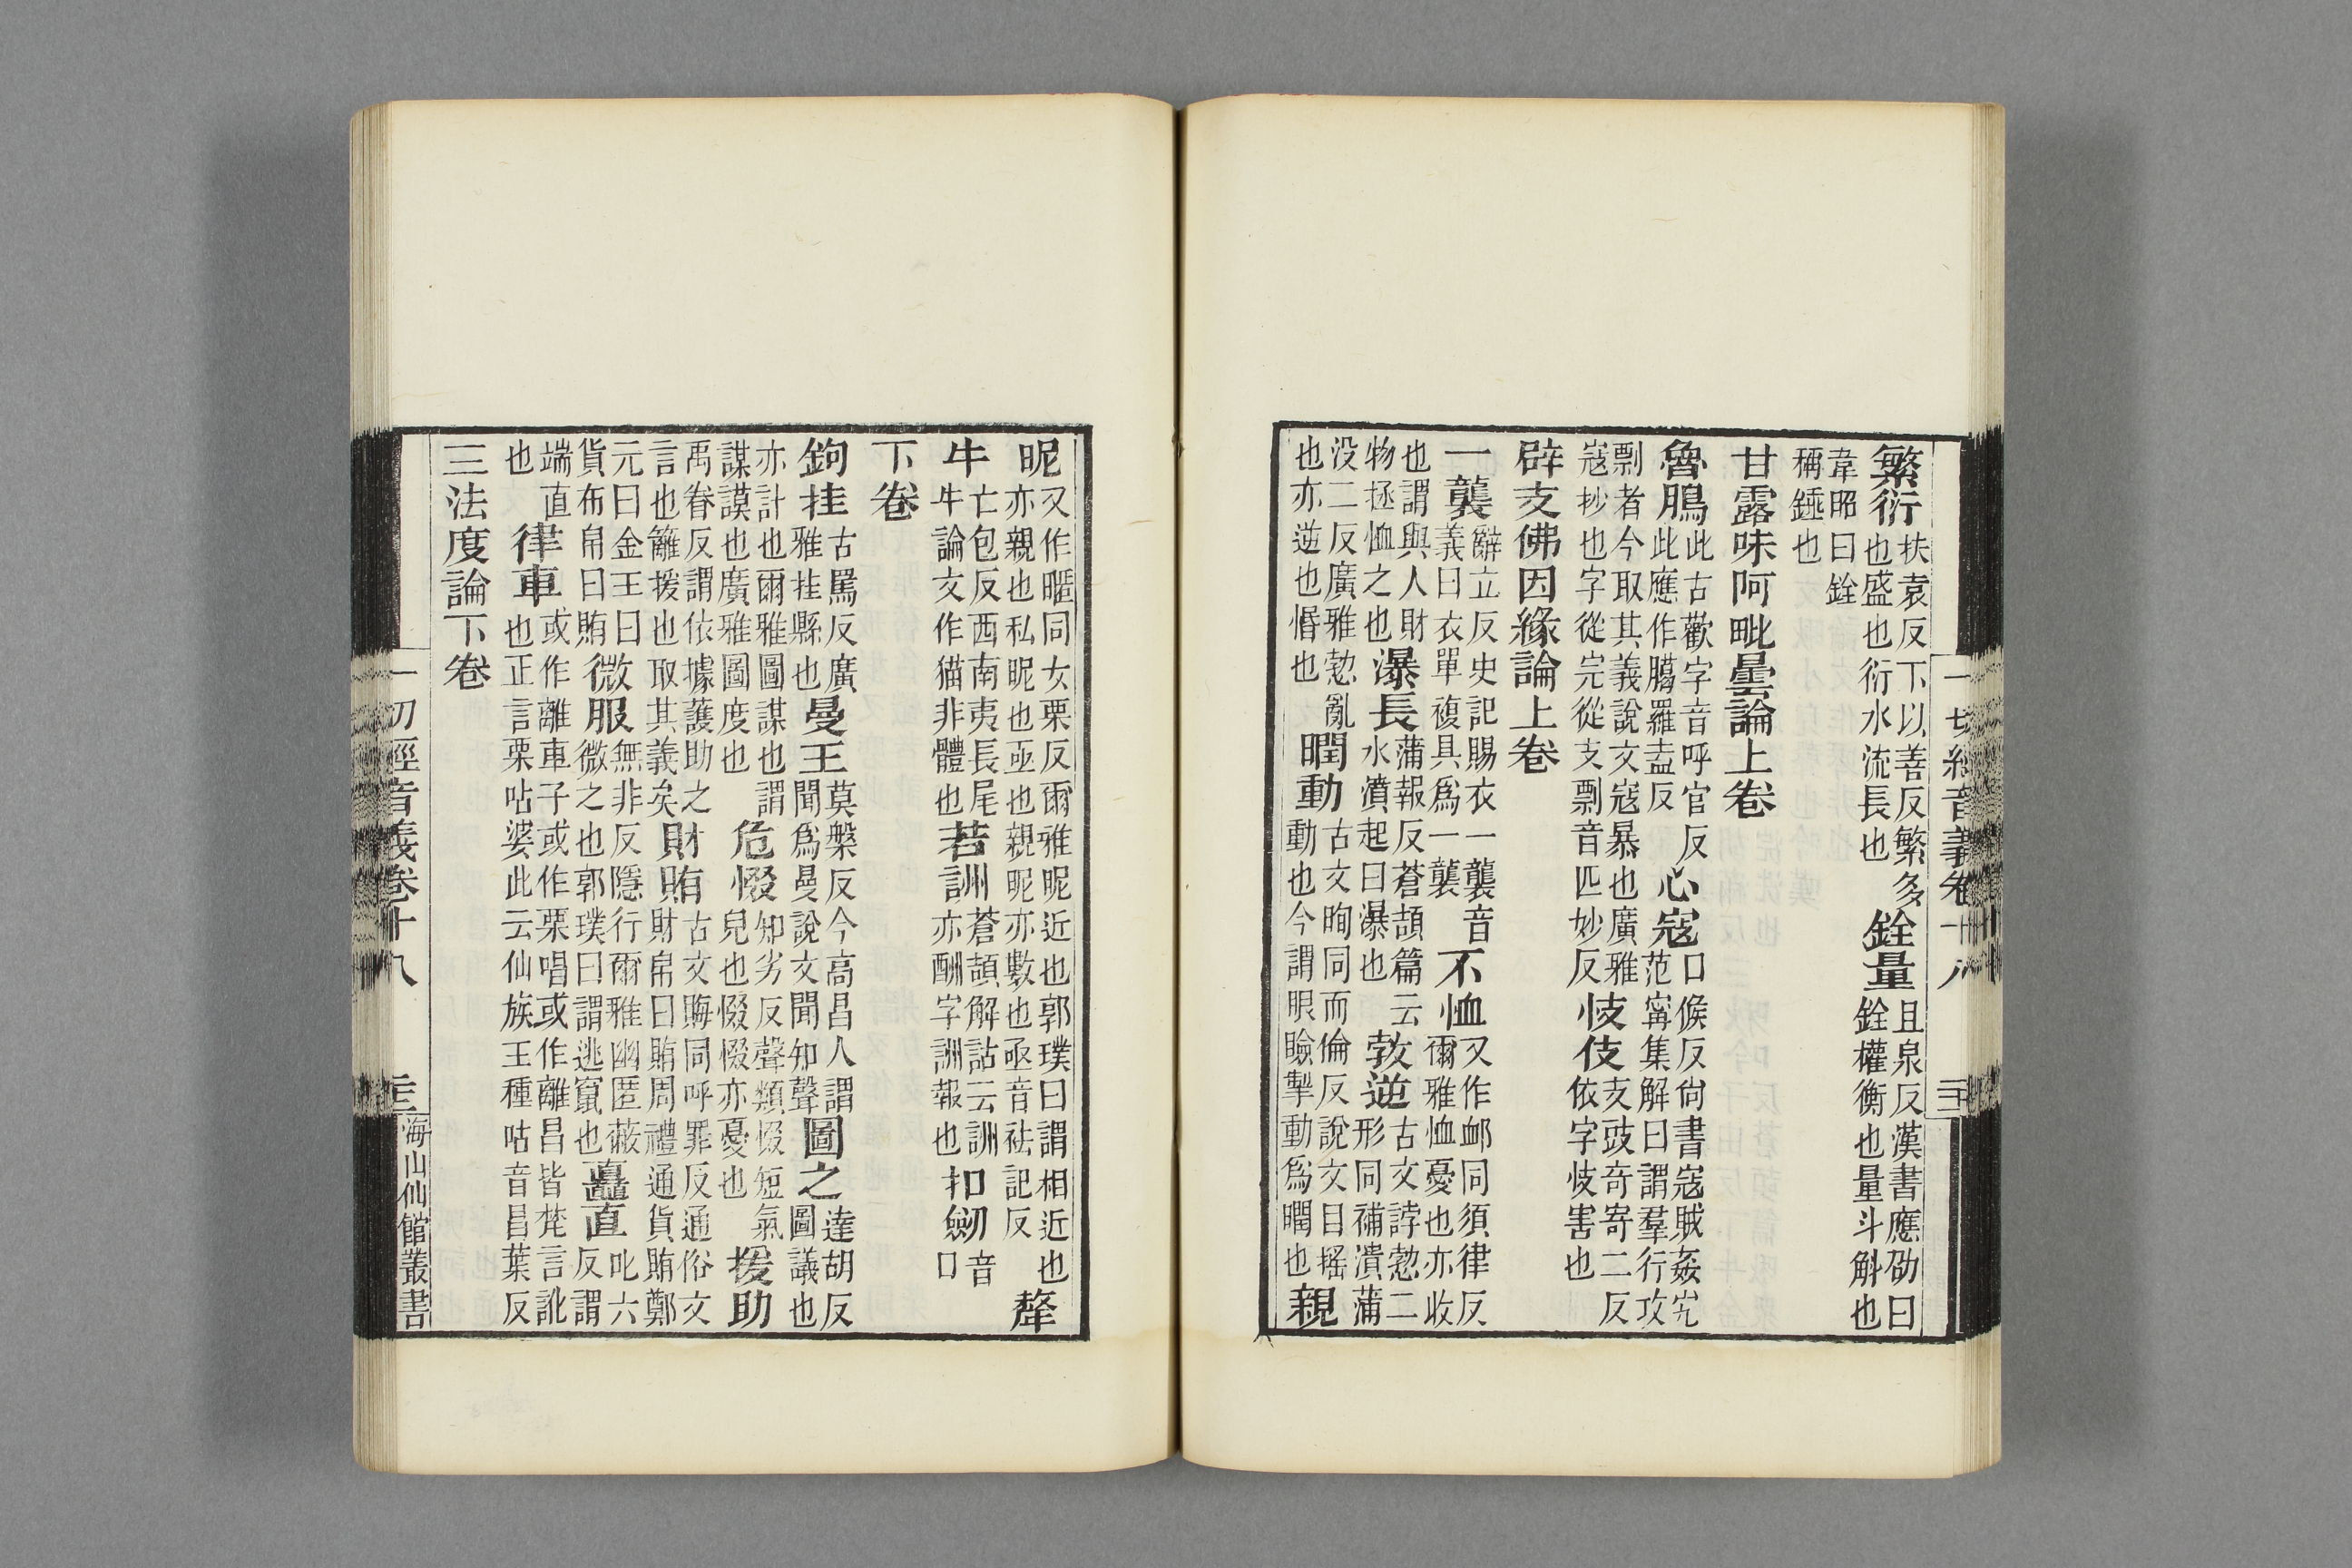 繁衍扶袁反下以善反繁多也盛也衍水流長也銓量且泉反漢書應劭曰銓權衡也量斗斛也
韋昭曰銓稱錘也
甘露味阿毗曇論上卷
魯鴅此古歡字音呼官反此應作臈羅盍反心寇口候反尙書寇賊姦宄范寗集解曰謂羣行攻
剽者今取其義說文寇暴也廣雅寇抄也字從完從攴剽音匹妙反忮伎支豉奇寄二反依字忮害也
辟支佛因緣論上卷
一襲辭立反史記賜衣一襲音義曰衣單複具爲一襲不恤又作卹同須律反爾雅恤憂也亦收
也謂與人財物拯恤之也瀑長蒲報反蒼頡篇云水濆起曰瀑也敦逆古文誖愂二形同補潰蒲
没二反廣雅愂亂也亦逆也惛也瞤動古文眴同而倫反說文目摇動也今謂眼瞼掣動爲瞤也親
昵又作暱同女栗反爾雅昵近也郭璞曰謂相近也亦親也私昵也亟也親昵亦數也亟音祛記反犛
牛亡包反西南夷長尾牛論文作猫非體也若詶蒼頡解詁云詶亦酬字詶報也扣劒音口
下卷
鉤挂古罵反廣雅挂縣也曼王莫槃反今高昌人謂聞爲曼說文聞知聲圖之達胡反圖議也
亦計也爾雅圖謀也謂謀謨也廣雅圖度也危惙知劣反聲類惙短氣皃也惙惙亦憂也援助
禹眷反謂依據護助之言也籬援也取其義矣財賄古文晦同呼罪反通俗文財帛曰賄周禮通貨賄鄭
元曰金玉曰貨布帛曰賄微服無非反隱行爾雅幽匿蔽微之也郭璞曰謂逃竄也矗直叱六反謂
端直也律車或作離車子或作栗唱或作離昌皆梵言訛也正言栗呫婆此云仙族王種呫音昌葉反
三法度論下卷
一切經音義卷十八
海山仙館叢書